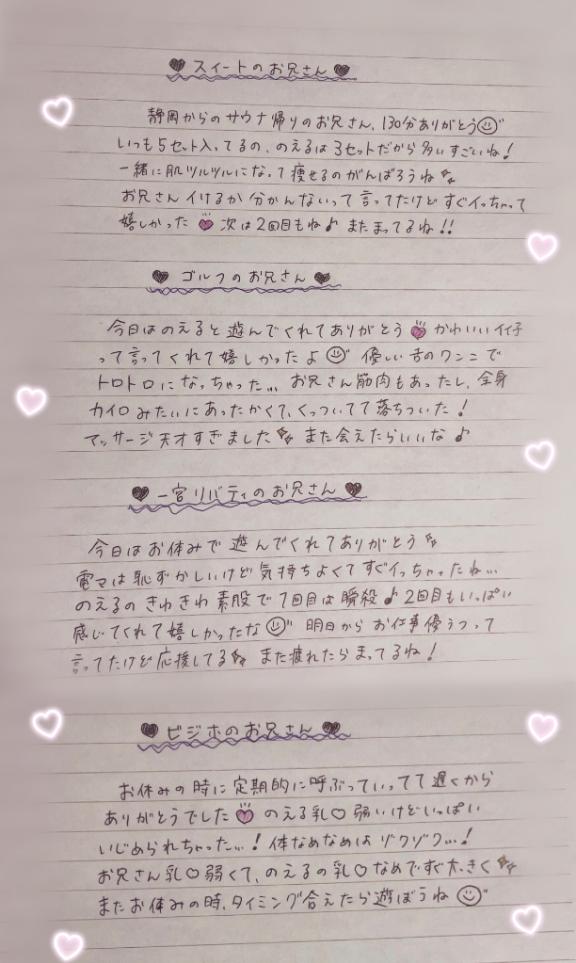 ♥スイートのお兄さん♥
静岡からのサウナ帰りのお兄さん、130分ありがとう☺
いつも5セット入ってるの、のえるは3セットだから多いすごいね!
一緒に肌ツルツルになって痩せるのがんばろうね
お兄さんイけるか分かんないって言ってたけどすぐイッちゃって
嬉しかった♥次は2回目もね♪またまってるね!!
♥ゴルフのお兄さん♥
今日はのえると遊んでくれてありがとう♥かわいいイイ子
って言ってくれて嬉しかったよ☺優しい舌のワンコで
トロトロになっちゃった... お兄さん筋肉もあったし、全身
カイロみたいにあったかくて、くっついてて落ちついた!
マッサージ天才すぎました また会えたらいいな♪
♥一宮リバティのお兄さん♥
今日はお休みで遊んでくれてありがとう
電マは恥ずかしいけど気持ちよくてすぐイっちゃったね...
のえるのきわきわ素股で1回目は瞬殺♪2回目もいっぱい
感じてくれて嬉しかったな☺明日からお仕事憂うつって
言ってたけど応援してる また疲れたらまってるね!
♥ビジホのお兄さん♥
お休みの時に定期的に呼ぶっていってて遅くから
ありがとうでした♥のえる乳♡弱いけどいっぱい
いじめられちゃった...!体なめなめはゾクゾク...!
お兄さん乳♡弱くて、のえるの乳♡なめですぐ大きく
またお休みの時、タイミング合えたら遊ぼうね☺